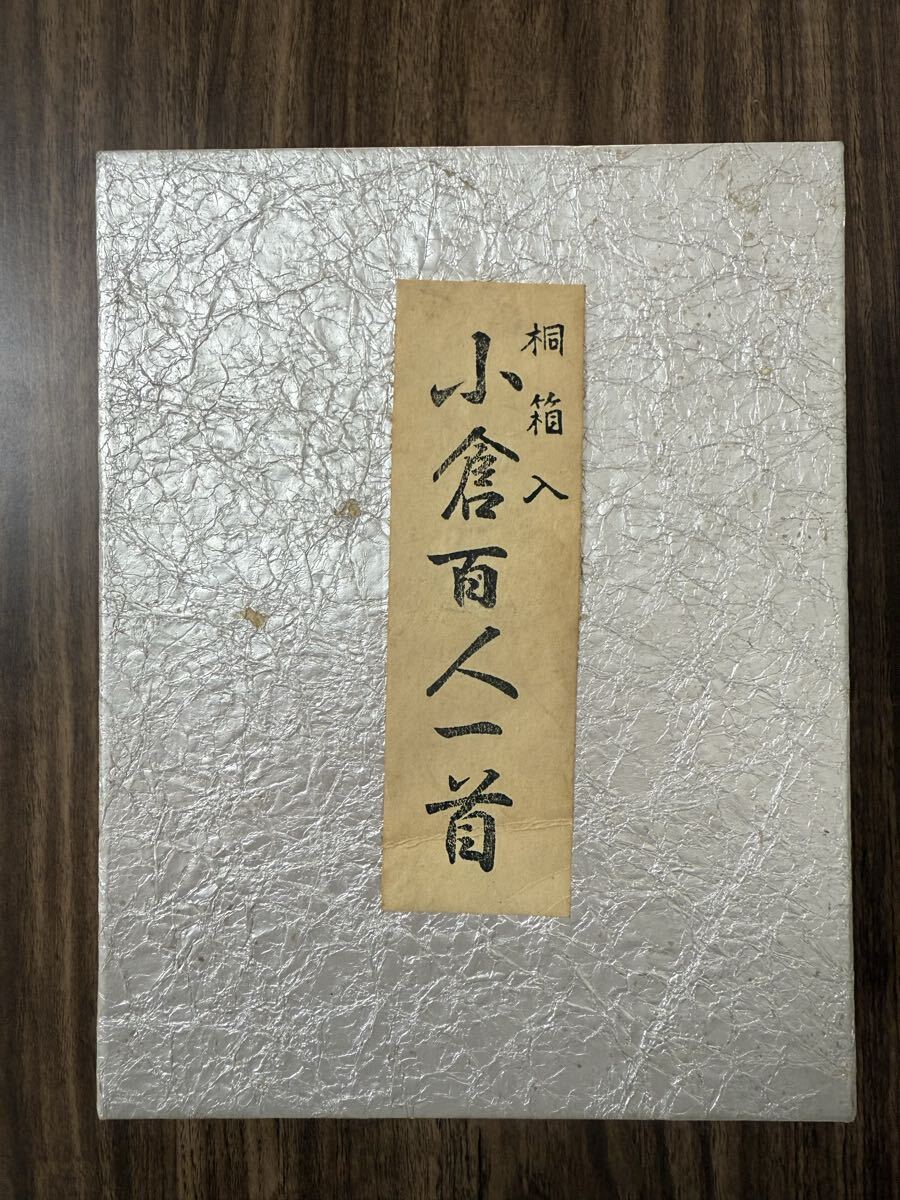 桐箱入
小倉百人一首